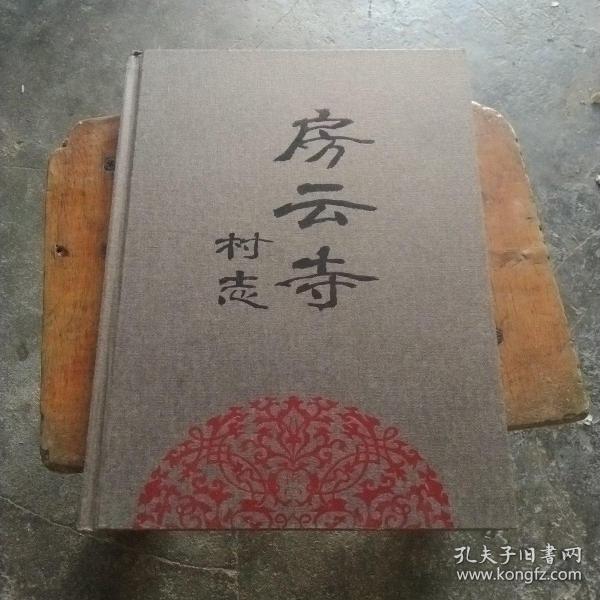 房云寺
村志
孔夫子旧書网
www.kongfz.com